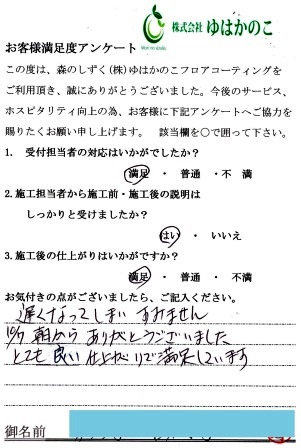 株式会社 ゆはかのこ
お客様満足度アンケート
この度は、森のしずく(株)ゆはかのこフロアコーティングを
ご利用頂き、誠にありがとうございました。今後のサービス、
ホスピタリティ向上の為、お客様に下記アンケートへご協力を
賜りたくお願い申し上げます。 該当欄を○で囲って下さい。
1. 受付担当者の対応はいかがでしたか?
満足 ・ 普通 ・ 不満
2.施工担当者から施工前・施工後の説明は
しっかりと受けましたか?
はい ・ いいえ
3.施工後の仕上がりはいかがですか?
満足 ・ 普通 ・ 不満
お気付きの点がございましたら、ご記入ください。
遅くなってしまい すみません
10/7 朝から ありがとうございました
とても 良い 仕上がりで満足しています
御名前